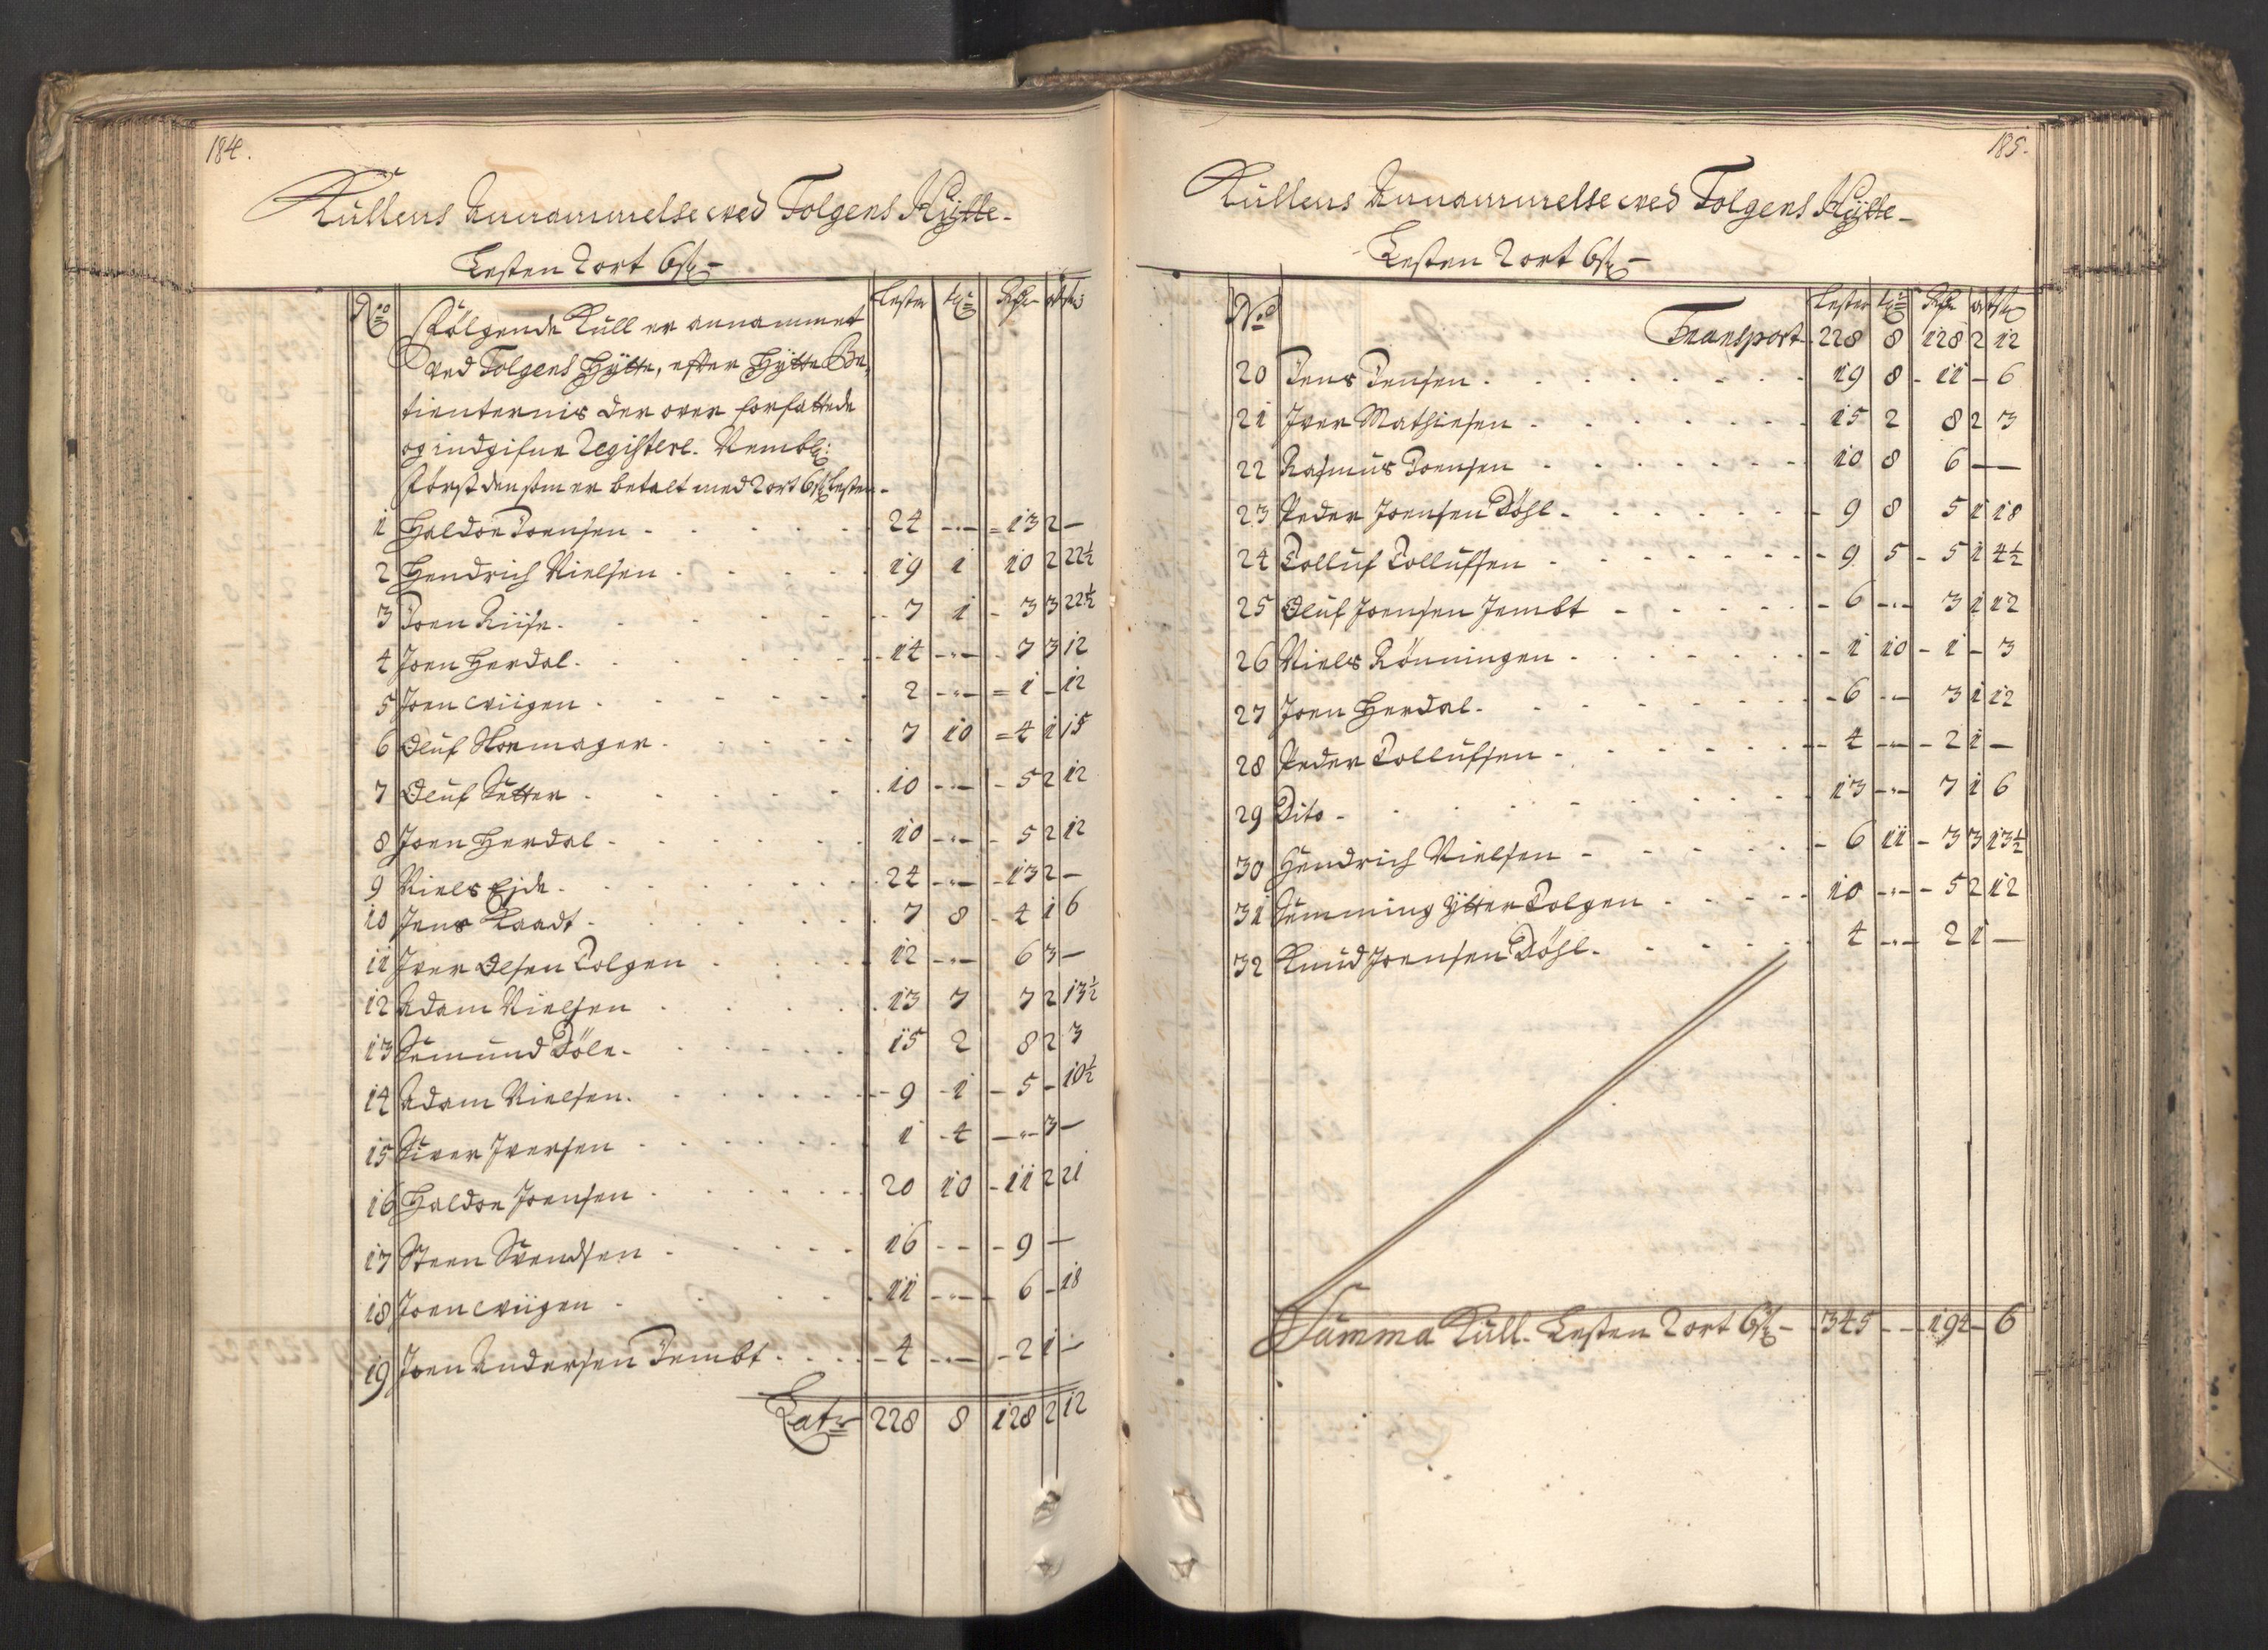 184.
Küllens Annammelse wed Tolgens Hÿtte-
Lesten 2 ort 6 ß-
No Lester tr Rdr ort ß
Fölgende Küll er annammet
wed Tolgens Hÿtte, efter Hÿtte Be-
tienternis der over forfattede
og indgifne Registere. Nembl:
Først den som er betalt med 2 ort 6 ß Lesten-
1 Haldor Joensen - 24 - 13 2 -
2 Hendrich Nielsen - 19 1 10 2 22½
3 Joen Riise - 7 1 3 3 22½
4 Joen Herdal - 14 - 7 3 12
5 Joen wiigen - 2 - 1 - 12
6 Oluf - 7 10 4 1 15
7 Oluf Sætter - 10 - 5 2 12
8 Joen Herdal - 10 - 5 2 12
9 Niels Ejde - 24 - 13 2 -
10 Jens Kaadt - 7 8 4 1 6
11 Iver Olsen Tolgen - 12 - 6 3 -
12 Adam Nielsen - 13 7 7 2 13½
13 Semund Döle - 15 2 8 2 3
14 Adam Nielsen - 9 1 5 - 10½
15 Siver Iversen - 1 4 - 3 -
16 Haldor Joensen - 20 10 11 2 21
17 Steen Svendsen - 16 - 9 -
18 Joen wiigen - 11 - 6 - 18
19 Joen Andersen Tembt - 4 - 2 1 -
Latr 228 8 128 2 12
185.
Küllens Annammelse wed Tolgens Hÿtte-
Lesten 2 ort 6 ß-
No Lester tr Rdr ort ß
Transport 228 8 128 2 12
20 Jens Jensen - 19 8 11 - 6
21 Iver Mathiesen - 15 2 8 2 3
22 Rasmus Joensen - 10 8 6 - -
23 Peder Joensen Döhl - 9 8 5 1 18
24 Tolluf Tollufsen - 9 5 5 1 4½
25 Oluf Joensen Jembt - 6 - 3 1 12
26 Niels Rönningen - 1 10 1 - 3
27 Joen Herdal - 6 - 3 1 12
28 Peder Tollufsen - 4 - 2 1 -
29 Dito - 13 - 7 1 6
30 Hendrich Nielsen - 6 11 3 3 13½
31 Semming ÿtter Tolgen - 10 - 5 2 12
32 Knud Joensen Döhl - 4 - 2 1 -
Summa Küll. Lesten 2 ort 6 ß - 345 - 194 - 6